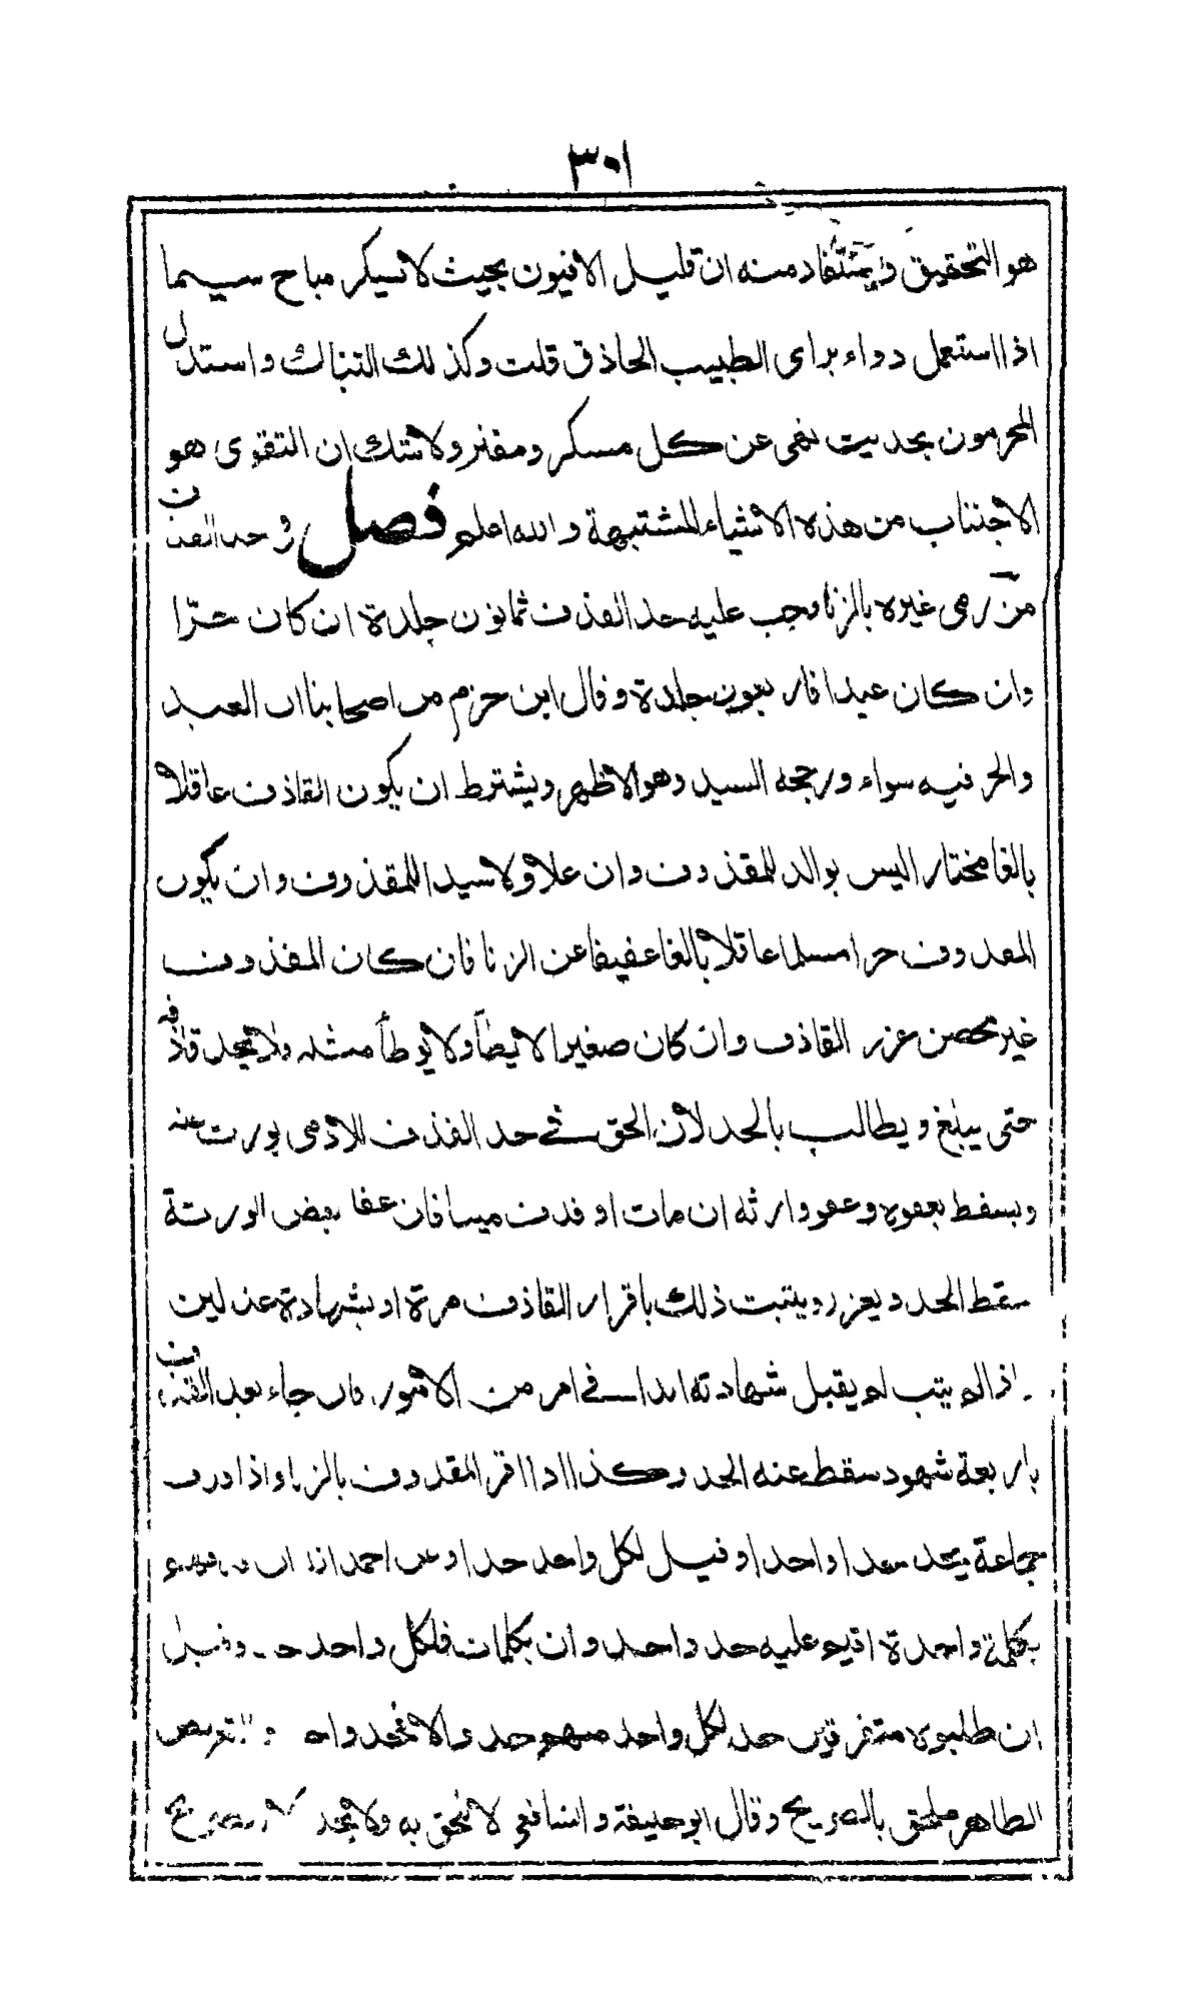 ٣٠١
هو التحقيق ويستفاد منه ان قليل الافيون بحيث لا يسكر مباح سيما
اذا استعمل دواء براى الطبيب الحاذق قلت وكذلك التنباك واستدل
المحرمون بحديث نهى عن كل مسكر ومفتر ولا شك ان التقوى هو
الاجتناب من هذه الاشياء المشتبهة والله اعلم فصل فى حد القذف
من رمى غيره بالزنا وجب عليه حد القذف ثمانون جلدة ان كان حرّا
وان كان عبدا فاربعون جلدة وقال ابن حزم من اصحابنا ان العبد
والحر فيه سواء ورجحه السيد وهو الاظهر ويشترط ان يكون القاذف عاقلا
بالغا مختارا ليس بوالد للمقذوف وان علا ولا سيدا للمقذوف وان يكون
المقذوف حرا مسلما عاقلا بالغا عفيفا عن الزنا فان كان المقذوف
غير محصن عزر القاذف وان كان صغيرا لا يطأ ولا يوطأ مثله ولا يحد قاذفه
حتى يبلغ ويطالب بالحد لان الحق فى حد القذف للادمى يورث عنه
ويسقط بعفوه وعفو وارثه ان مات او قذف ميتا فان عفا بعض الورثة
سقط الحد ويعزر ويثبت ذلك باقرار القاذف مرة او بشهادة عدلين
واذا لم يتب لم يقبل شهادته ابدا فى امر من الامور فان جاء بعد القذف
باربعة شهود سقط عنه الحد وكذا اذا اقر المقذوف بالزنا واذا قذف
جماعة يحد حدا واحدا وقيل لكل واحد حد وعن احمد ان قذفهم
بكلمة واحدة اقيم عليه حد واحد وان بكلمات فلكل واحد حد وقيل
ان طلبوه متفرقين حد لكل واحد منهم حد والا فحد واحد والتعريض
الظاهر ملحق بالصريح وقال ابو حنيفة والشافعى لا يلحق به ولا يحد الا بصريح